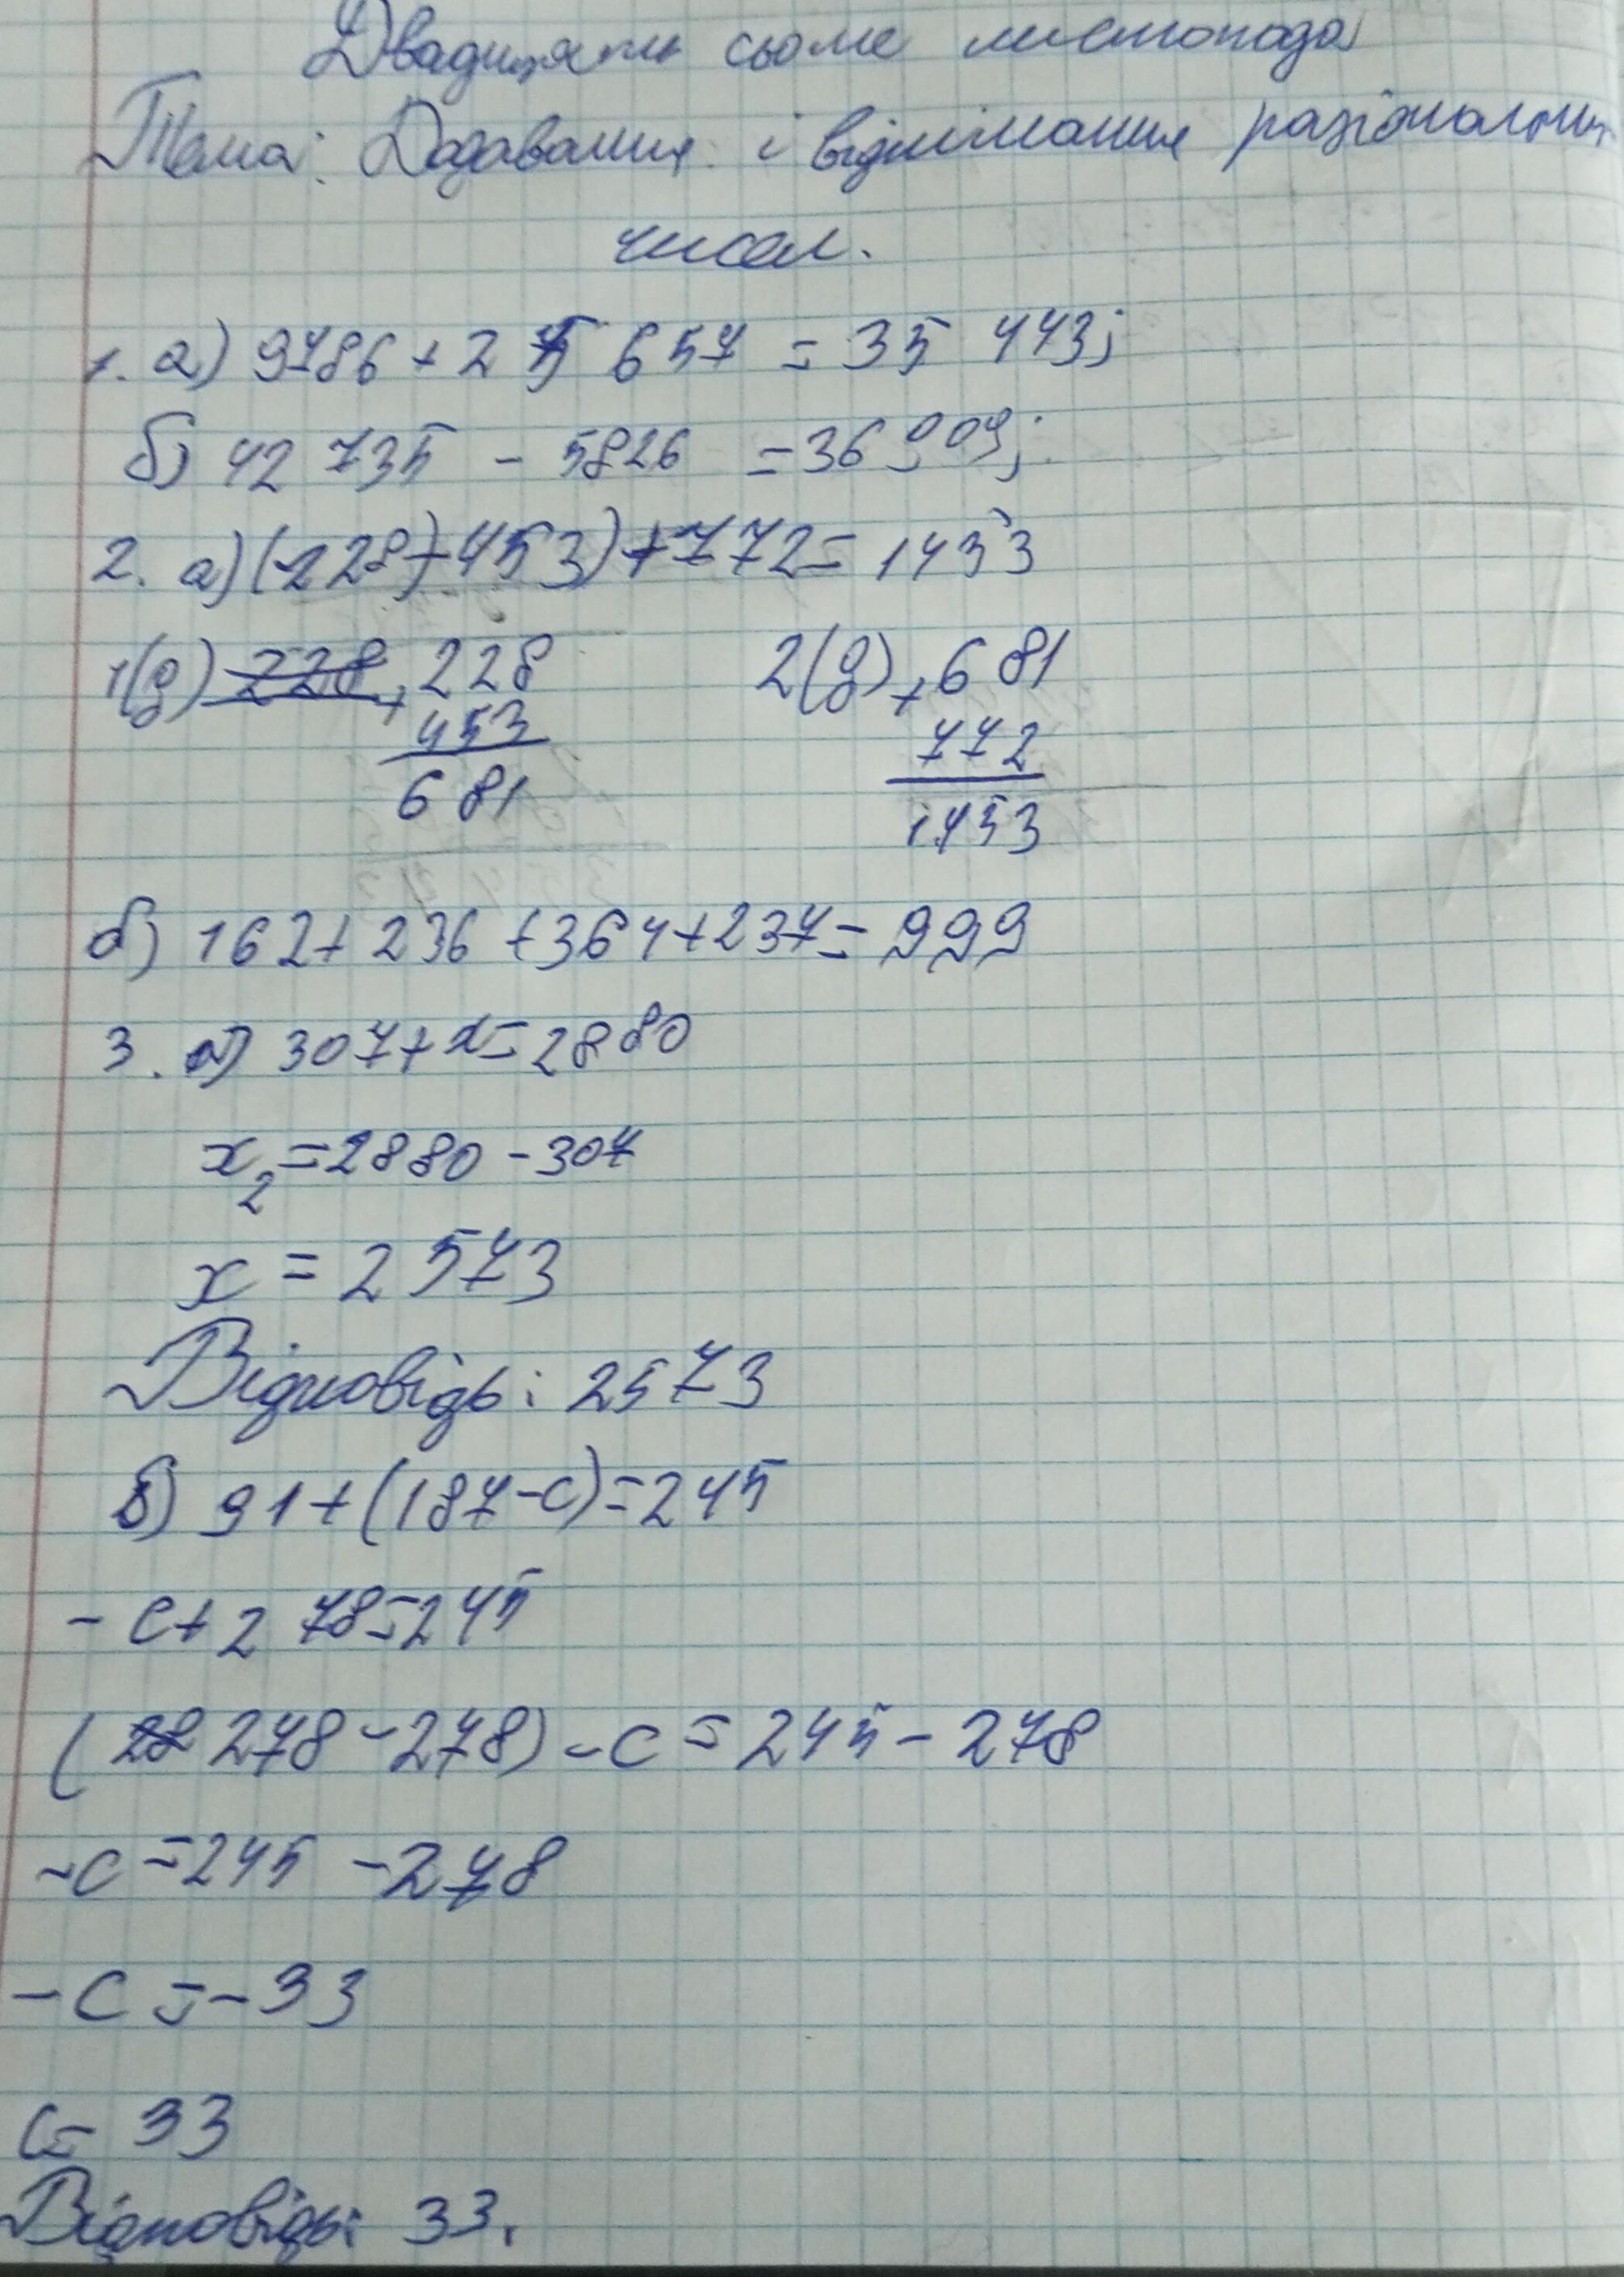 Двадцять сьоме листопада
Тема: Додавання і віднімання раціональних
чисел.
1. а) 9786 + 25 657 = 35 443;
б) 42 735 - 5826 = 36 909;
2. а) (228 + 453) + 772 = 1453
1(д) 228 + 228 2(д) + 681
453 772
681 1453
б) 162 + 236 + 364 + 237 = 999
3. а) 307 + x = 2880
x₂ = 2880 - 307
x = 2573
Відповідь: 2573
б) 91 + (187 - c) = 245
- c + 278 = 245
(28 278 - 278) - c = 245 - 278
- c = 245 - 278
- c = - 33
c = 33
Відповідь: 33.